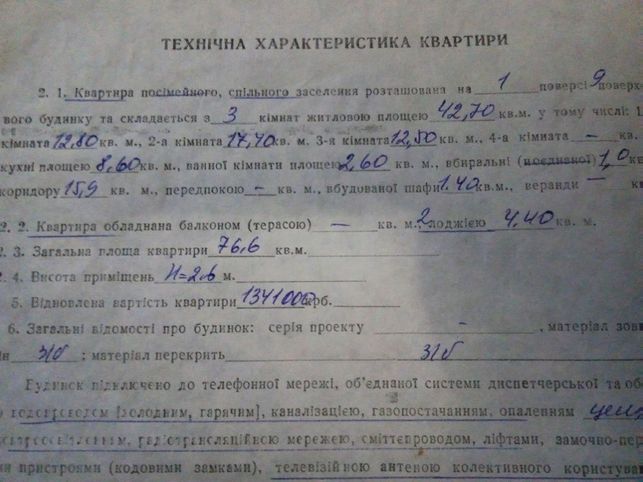 ТЕХНІЧНА ХАРАКТЕРИСТИКА КВАРТИРИ
2. 1. Квартира посімейного, спільного заселення розташована на 1 поверсі 9 поверхо
вого будинку та складається з 3 кімнат житловою площею 42,70 кв.м. у тому числі: 1
кімната 12,80 кв. м., 2-а кімната 17,40 кв. м. 3-я кімната 12,50 кв. м., 4-а кімната — кв.
кухні площею 8,60 кв. м., ванної кімнати площею 2,60 кв. м., вбиральні (поєднаної) 1,0 кв
коридору 15,9 кв. м., передпокою — кв. м., вбудованої шафи 1.40 кв.м., веранди — к
2. 2. Квартира обладнана балконом (терасою) — кв. м. 2 лоджією 4,40 кв. м.
2. 3. Загальна площа квартири 76,6 кв.м.
2. 4. Висота приміщень H=2.6 м.
5. Відновлена вартість квартири 1341000 крб.
6. Загальні відомості про будинок: серія проекту - , матеріал зов
ін З/б ; матеріал перекрить З/б
Будинок підключено до телефонної мережі, об'єднаної системи диспетчерської та об
водопроводом [холодним, гарячим], каналізацією, газопостачанням, опаленням
радіотрансляційною мережею, сміттєпроводом, ліфтами, замочно-пер
ми пристроями (кодовими замками), телевізійною антеною колективного користува